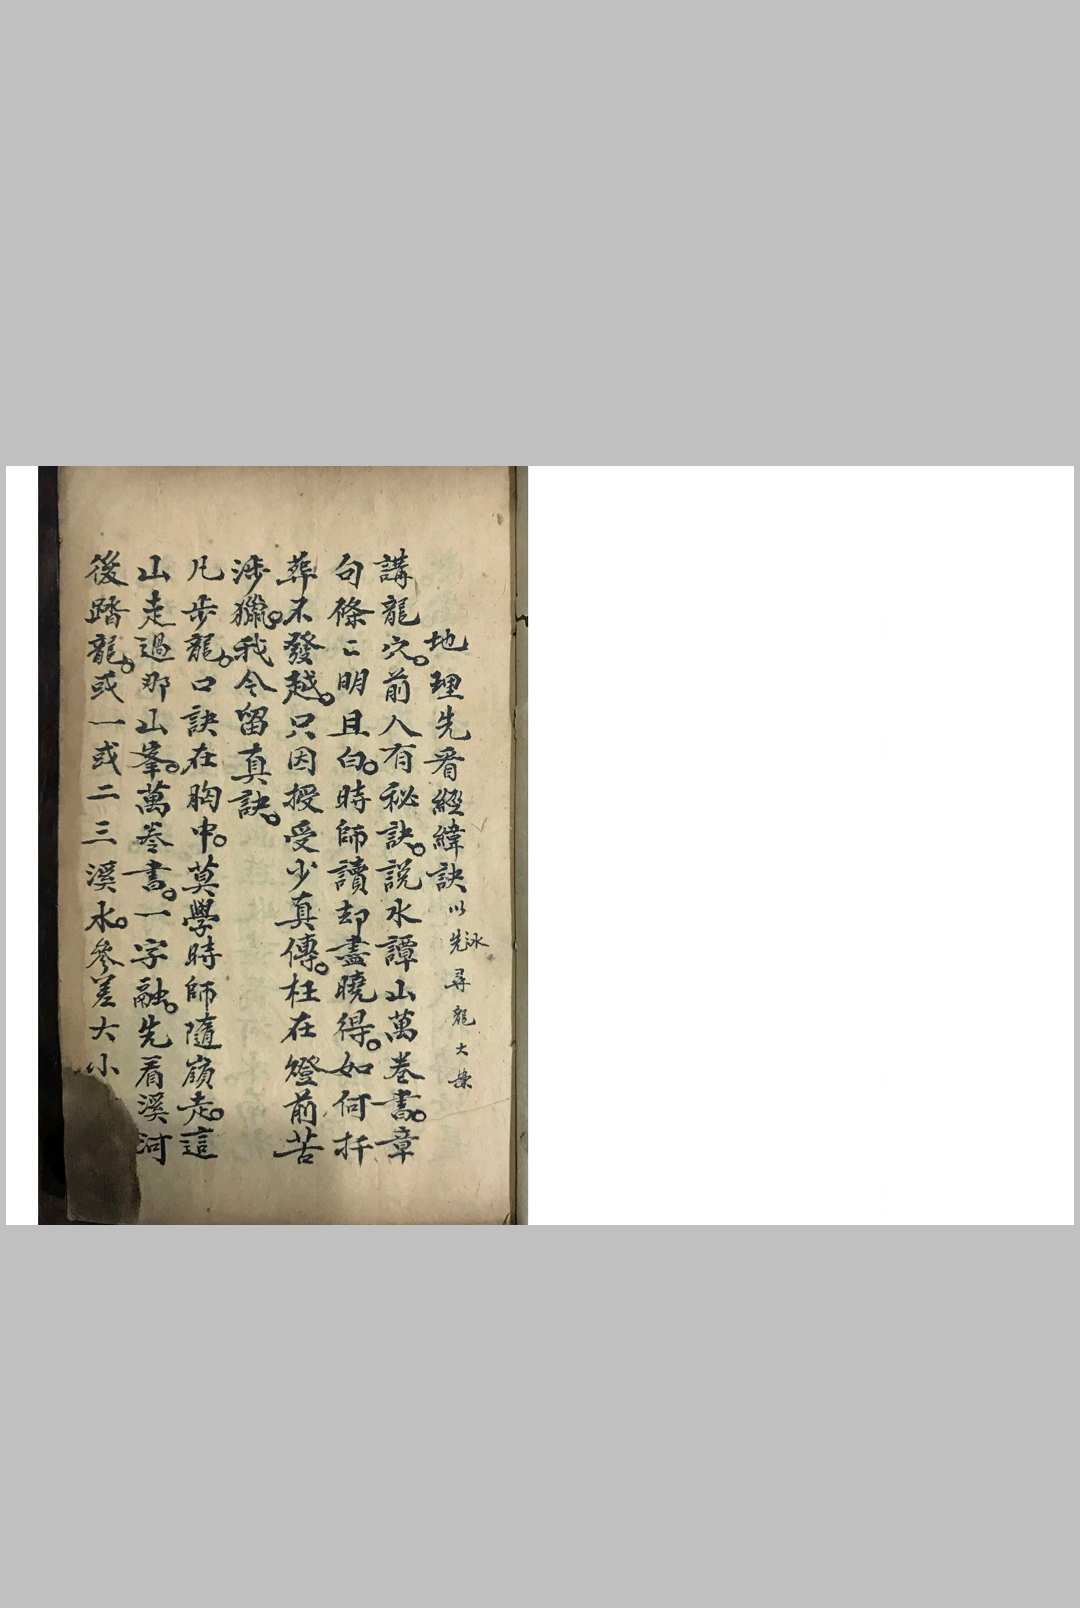 地理先看經緯訣以先水尋龍大樂
講龍穴。前人有秘訣。說水譚山萬卷書。章
句條〻明且白。時師讀却盡曉得。如何扦
葬不發越。只因授受少真傳。枉在燈前苦
涉獵。我今留真訣。
凡步龍。口訣在胸中。莫學時師隨嶺走。這
山走過那山峯。萬卷書。一字融。先看溪河
後踏龍。或一或二三溪水。參差大小